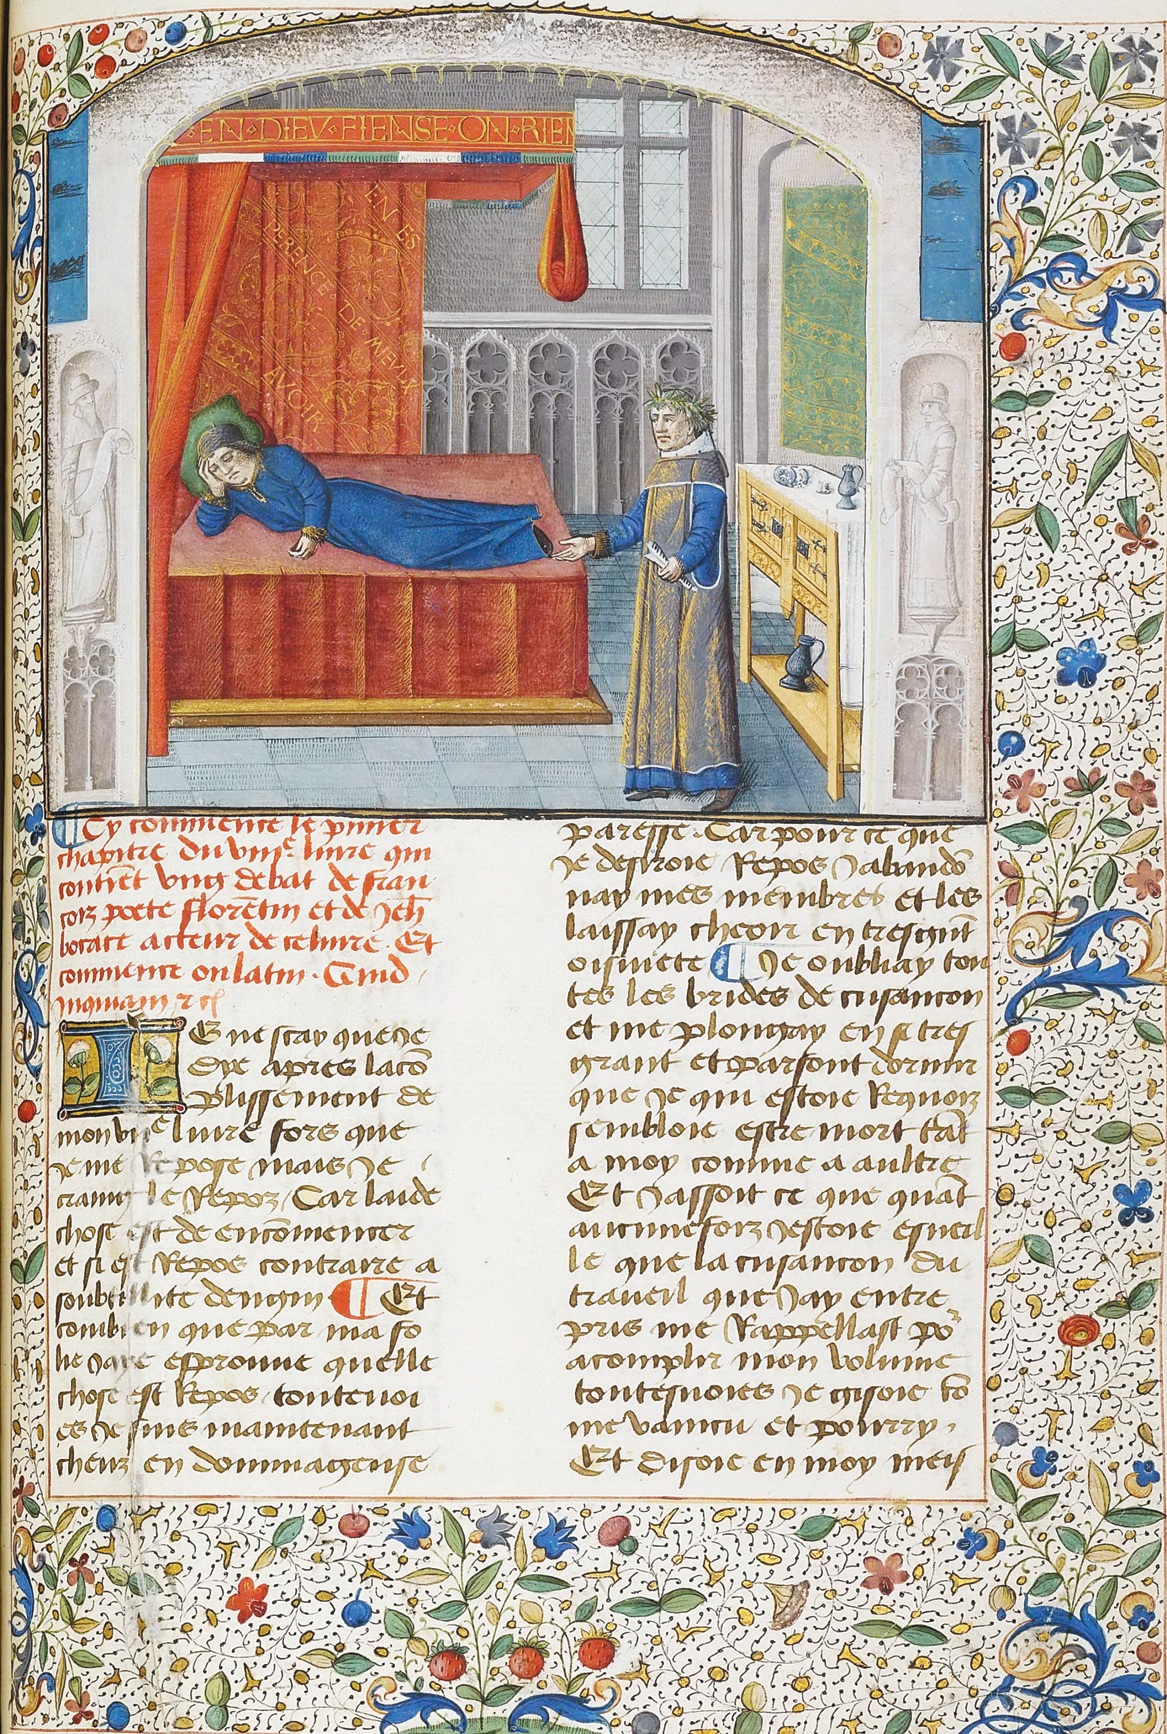 EN·DIEV·FIENSE·ON·RIEN
EN ES
PERENCE DE MIEVLX
AVOIR
Cy commence le pmier
chapitre du viiie. liure qui
contiēt vng debat de fran
cois poete florētin et de Jeh
bocace acteur de ce liure. Et
commence ou latin. Quid
inquiam &c
Je ne scay que Je
dye apres lacō
plissement de
mon viie liure fors que
Je me Repose mais Je
craing le Repoz. Car laide
chose est de encōmencer
et si est Repos contraire a
soubtillite dengin ¶ Et
combien que par ma fo
lie Jaye esprouue quelle
chose est Repos. toutevoi
es Je suis maintenant
cheuz en dommageuse
paresse. Car pour ce que
Je desiroie Repos Jabandō
nay mes membres et les
laissay cheoir en tresgūt
oisiuete ¶ Je oubliay tou
tes les brides de cusancon
et me plongay en si tres
grant et parfont dormir
que Je qui estoie Requoiz
sembloie estre mort tāt
a moy comme a aultre
Et Jassoit ce que quāt
aucuneffoiz Jestoie esueil
le que la cusancon du
traueil que Jay entre
pris me Rappellast po᷑
acomplir mon volume
toutesuoies Je gisoie cō
me vaincu et pourry.
Et disoie en moy meis